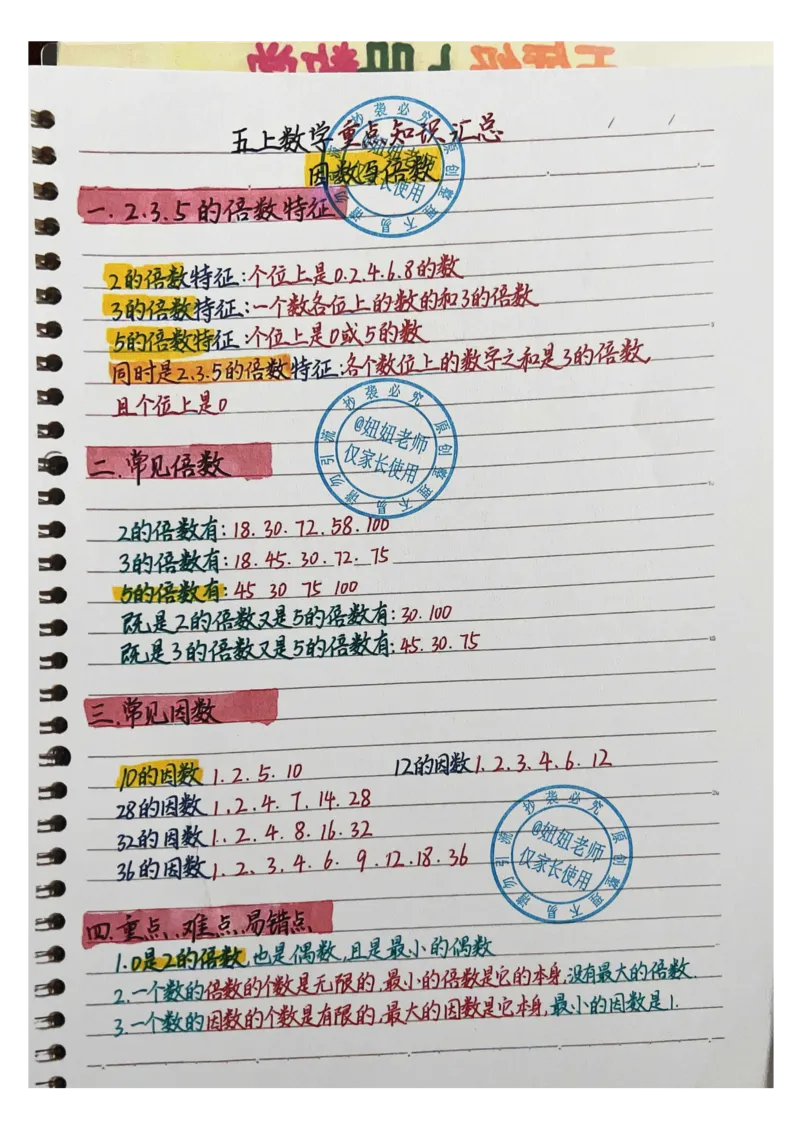 五上数学重点知识汇总
因数与倍数
一.2.3.5的倍数特征
2的倍数特征:个位上是0.2.4.6.8的数
3的倍数特征:一个数各位上的数的和3的倍数
5的倍数特征:个位上是0或5的数
同时是2.3.5的倍数特征:各个数位上的数字之和是3的倍数,
且个位上是0
二.常见倍数
2的倍数有:18.30.72.58.100
3的倍数有:18.45.30.72.75
5的倍数有:45 30 75 100
既是2的倍数又是5的倍数有:30.100
既是3的倍数又是5的倍数有:45.30.75
三.常见因数
10的因数 1.2.5.10 12的因数1.2.3.4.6.12
28的因数 1.2.4.7.14.28
32的因数1.2.4.8.16.32
36的因数1.2.3.4.6.9.12.18.36
四.重点、难点、易错点
1.0是2的倍数,也是偶数,且是最小的偶数
2.一个数的倍数的个数是无限的,最小的倍数是它的本身,没有最大的倍数.
3.一个数的因数的个数是有限的,最大的因数是它本身,最小的因数是1.
抄袭必究 原创整理不易 请勿引流
@妞妞老师
仅家长使用
抄袭必究 原创整理不易 请勿引流
@妞妞老师
仅家长使用
抄袭必究 原创整理不易 请勿引流
@妞妞老师
仅家长使用